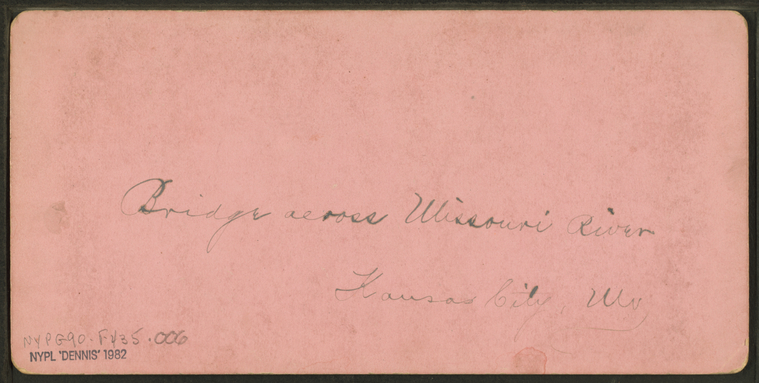 Bridge across Missouri River
Kansas City, Mo
NYPG90-FY35-006
NYPL 'DENNIS' 1982